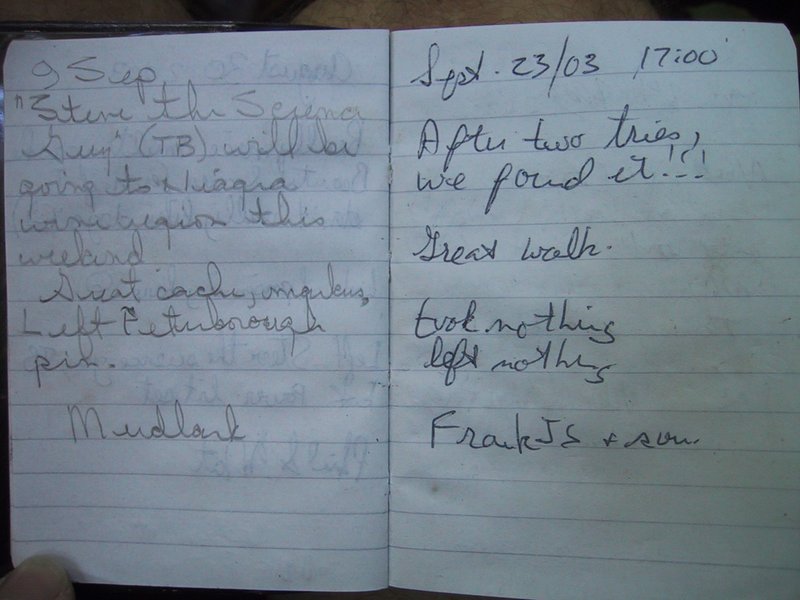 9 Sep
"Steve the Science
Guy" (TB) will be
going to Niagra
wine region this
weekend
Great cache,
Left Peterborough
pin.
Mudlark
Sept. 23/03 17:00
After two tries,
we found it!!!
Great walk.
took nothing
left nothing
FrankJS + son.